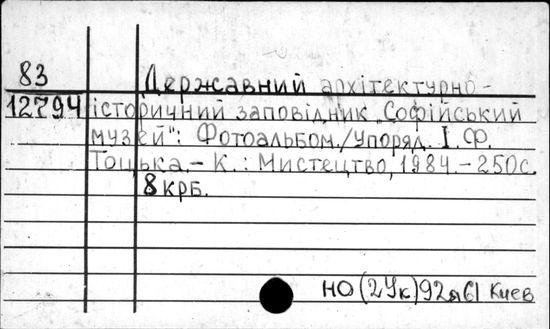 83 Державний архітектурно-
12794 історичний заповідник "Софійський
музей": Фотоальбом./Упоряд. І. Ф.
Тоцька.- К.: Мистецтво, 1984.- 250с.
8 крб.
НО(2Ук)92я61 Киев